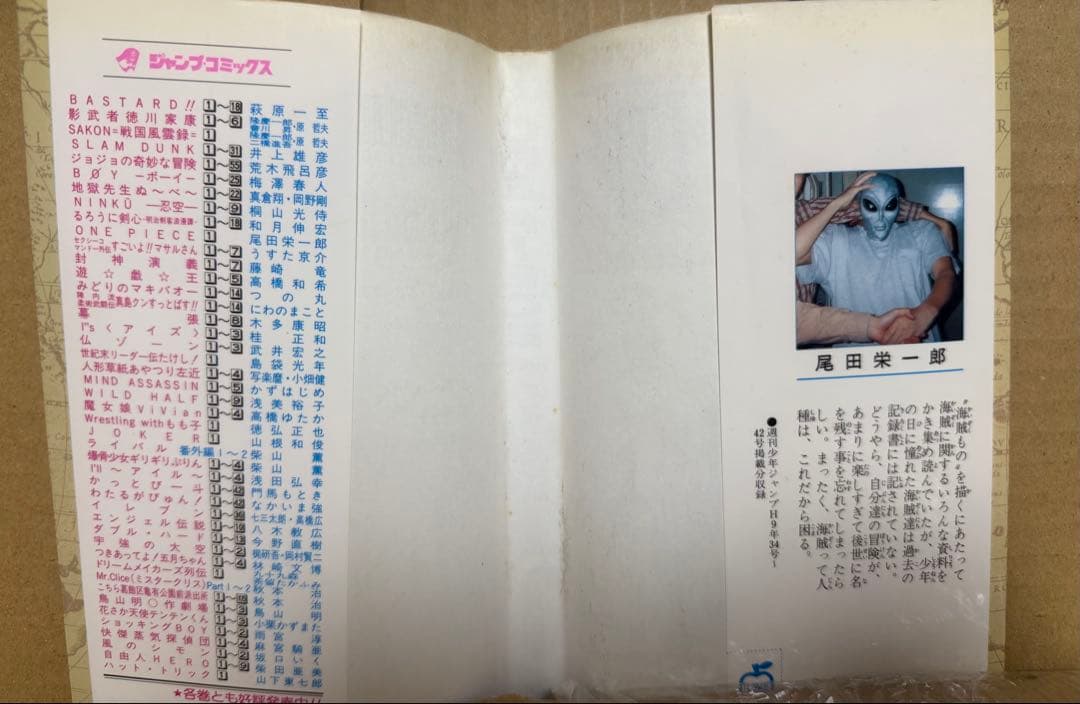 ジャンプ・コミックス
BASTARD!! 1～18 萩原一至
影武者徳川家康 1～6 隆慶一郎・會川昇・原哲夫
SAKON=戦国風雲録= 1 隆慶一郎・二橋進吾・原哲夫
SLAM DUNK 1～31 井上雄彦
ジョジョの奇妙な冒険 1～55 荒木飛呂彦
BØY ―ボーイ― 1～25 梅澤春人
地獄先生ぬ～べ～ 1～22 真倉翔・岡野剛
NINKŪ ―忍空― 1～9 桐山光侍
るろうに剣心-明治剣客浪漫譚- 1～18 和月伸宏
ONE PIECE 1 尾田栄一郎
セクシーコマンドー外伝 すごいよ!!マサルさん 1～7 うすた京介
封神演義 1～7 藤崎竜
遊☆戯☆王 1～5 高橋和希
みどりのマキバオー 1～14 つの丸
陣内流柔術武闘伝 真島クンすっとばす!! 1～14 にわのまこと
幕張 1～8 木多康昭
I"s〈アイズ〉 1～3 桂正和
仏ゾーン 1～3 武井宏之
世紀末リーダー伝たけし! 1 島袋光年
人形草紙あやつり左近 1～4 写楽麿・小畑健
MIND ASSASSIN 1～5 かずはじめ
WILD HALF 1～9 浅美裕子
魔女娘ViVian 1～4 高橋ゆたか
Wrestling withもも子 1 徳弘正也
JOKER 1 山根和俊
ライバル 番外編1～2 柴山薫
爆骨少女ギリギリぷりん 1～4 柴山薫
I'll～アイル～ 1～4 浅田弘幸
かっとび一斗 門馬もとき
わたるがぴゅん! なかいま強
イレブン 七三太朗・高橋広
エンジェル伝説 八木教広
ダブル・ハード 今野直樹
宇強の大空 梶研吾・岡村賢二
つきあってよ!五月ちゃん 1～4 林崎文博
ドリームメイカーズ列伝 1
Mr.Clice(ミスタークリス) Part1～2 秋本治
こちら葛飾区亀有公園前派出所 秋本治
鳥山明○作劇場 1～3 鳥山明
花さか天使テンテンくん 1～3 小栗かずまた
ショッキングBOY 1～2 雨宮淳
快傑蒸気探偵団 1～4 麻宮騎亜
風のシモン 1～2 坂口いく
自由人HERO 1～9 柴田亜美
ハット・トリック 1 山下東七郎
★各巻とも好評発売中!!
尾田栄一郎
“海賊もの”を描くにあたって
海賊に関するいろんな資料を
かき集め読んでいたが、少年
の日に憧れた海賊達は過去の
記録書には記されていない。
どうやら、自分達の冒険が、
あまりに楽しすぎて後世に名
を残す事を忘れてしまったら
しい。まったく、海賊って人
種は、これだから困る。
●週刊少年ジャンプH9年34号～
42号掲載分収録